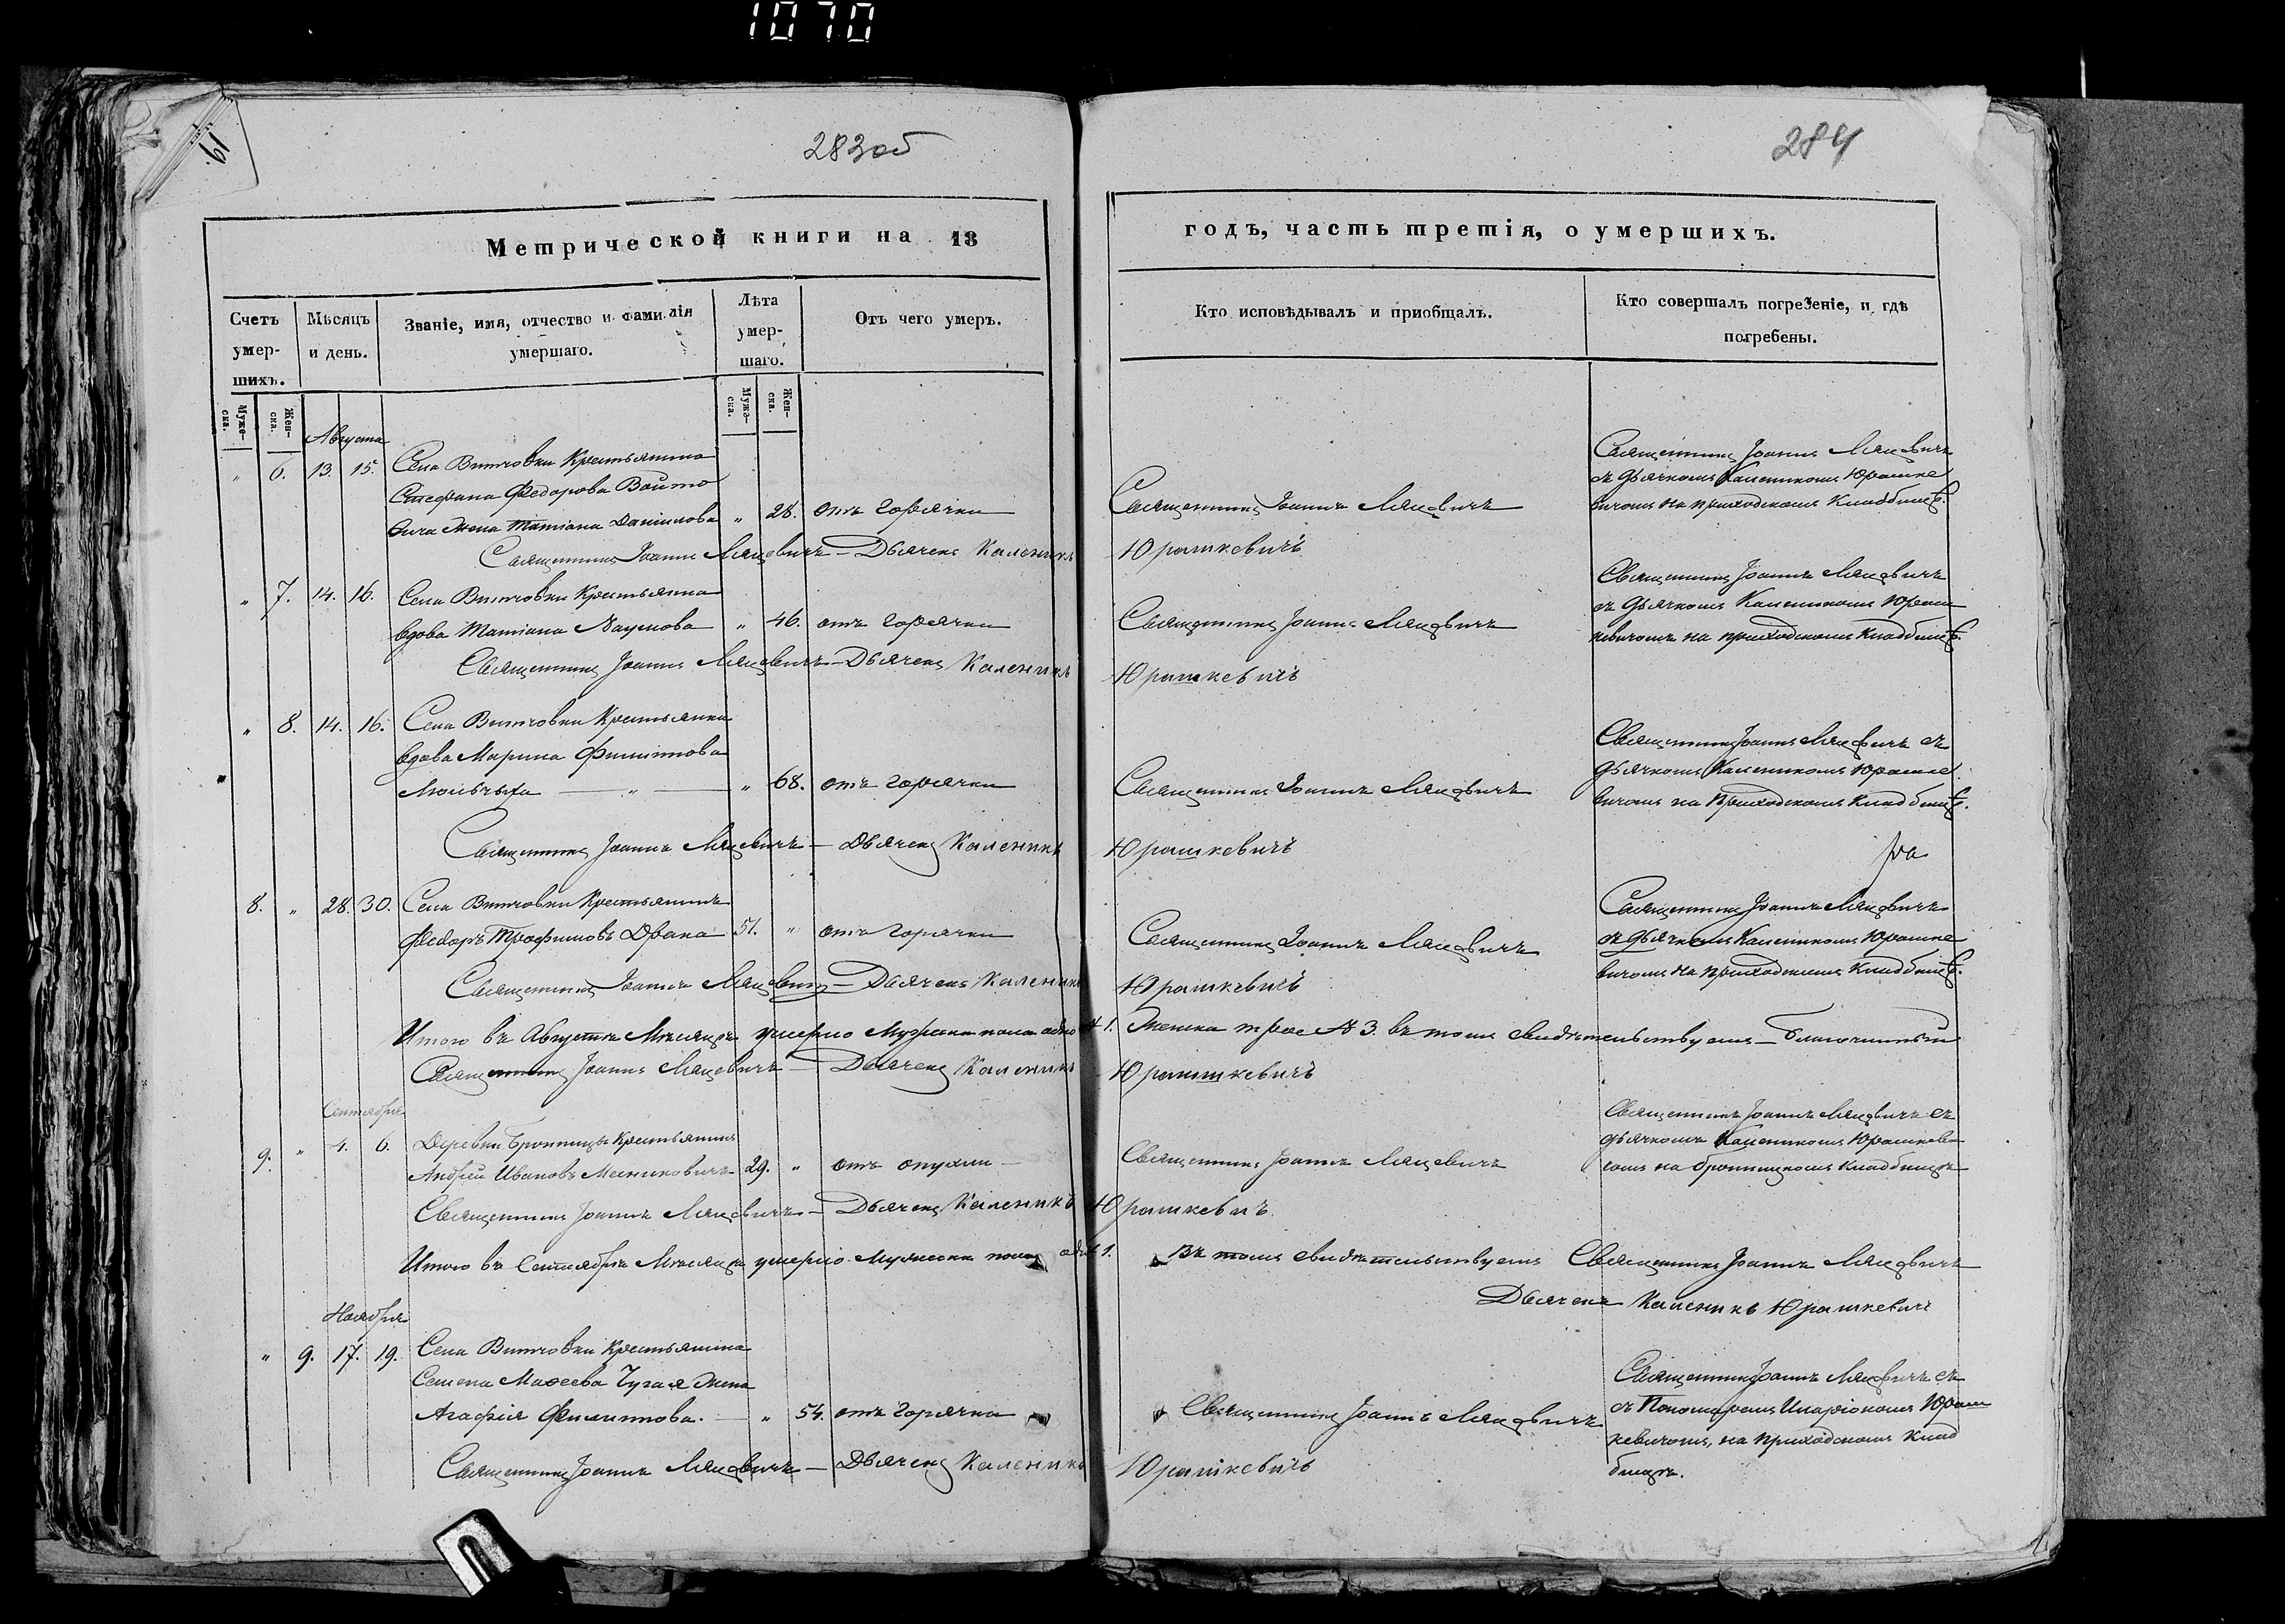 1070
19.
283об
284
Метрической книги на 18
годъ, часть третія, о умершихъ.
Счетъ умер-шихъ.
Мѣсяцъ и день.
Званіе, имя, отчество и фамилія умершаго.
Лѣта умер-шаго.
Отъ чего умеръ.
Кто исповѣдывалъ и пріобщалъ.
Кто совершалъ погребеніе, и гдѣ погребены.
Муже-ска.
Жен-ска.
Муже-ска.
Жен-ска.
Августа
" 6. 13. 15. Села Витчовки Крестьянина
Стефана Федорова Войто
вича жена Татіана Даніилова " 28. отъ горячки
Священникъ Іоаннъ Ляцевичъ
Священникъ Іоаннъ Ляцевичъ
съ дьячкомъ Калеником Юрашке
вичомъ на приходскомъ кладбищѣ.
Священникъ Іоаннъ Ляцевичъ – Дьячекъ Каленикъ Юрашкевичъ
" 7. 14. 16. Села Витчовки Крестьянка
вдова Татіана Наумова " 46. отъ горячки
Священникъ Іоаннъ Ляцевичъ
Священникъ Іоаннъ Ляцевичъ
съ дьячкомъ Калеником Юраш
кевичомъ на приходскомъ кладбищѣ.
Священникъ Іоаннъ Ляцевичъ – Дьячекъ Каленикъ Юрашкевичъ
" 8. 14. 16. Села Витчовки Крестьянка
вдова Марина Филиппова
" 68. отъ горячки
Священникъ Іоаннъ Ляцевичъ
Священникъ Іоаннъ Ляцевичъ съ
дьячкомъ Калеником Юрашке
вичомъ на приходскомъ кладбищѣ.
Священникъ Іоаннъ Ляцевичъ – Дьячекъ Каленикъ Юрашкевичъ
8. " 28. 30. Села Витчовки Крестьянинъ
Федоръ Трофимовъ 51. " отъ горячки
Священникъ Іоаннъ Ляцевичъ
Священникъ Іоаннъ Ляцевичъ
съ дьячкомъ Калеником Юрашке
вичомъ на приходскомъ кладбищѣ.
Священникъ Іоаннъ Ляцевичъ – Дьячекъ Каленикъ Юрашкевичъ
Итого въ Августѣ Мѣсяцѣ умерло Мужеска пола 1. Женска трое 3. въ томъ свидѣтельствуемъ – Благочинный
Священникъ Іоаннъ Ляцевичъ – Дьячекъ Каленикъ Юрашкевичъ
Сентября
9. " 4. 6. Деревни Бронницы Крестьянинъ
Андрей Ивановъ 29. " отъ опухли –
Священникъ Іоаннъ Ляцевичъ
Священникъ Іоаннъ Ляцевичъ съ
дьячкомъ Калеником Юрашкеви
чомъ на Бронницкомъ кладбищѣ
Священникъ Іоаннъ Ляцевичъ – Дьячекъ Каленикъ Юрашкевичъ
Итого въ Сентябрѣ Мѣсяцѣ умерло Мужеска пола 1. Въ томъ свидѣтельствуемъ Священникъ Іоаннъ Ляцевичъ
Дьячекъ Каленикъ Юрашкевичъ
Ноября
" 9. 17. 19. Села Витчовки Крестьянина
Семена Маѳеева Чугая жена
Агафія Филиппова. " 54. отъ горячки
Священникъ Іоаннъ Ляцевичъ
Священникъ Іоаннъ Ляцевичъ съ
съ Пономаремъ Иларіономъ Юраш
кевичомъ, на приходскомъ клад
бищѣ.
Священникъ Іоаннъ Ляцевичъ – Дьячекъ Каленикъ Юрашкевичъ